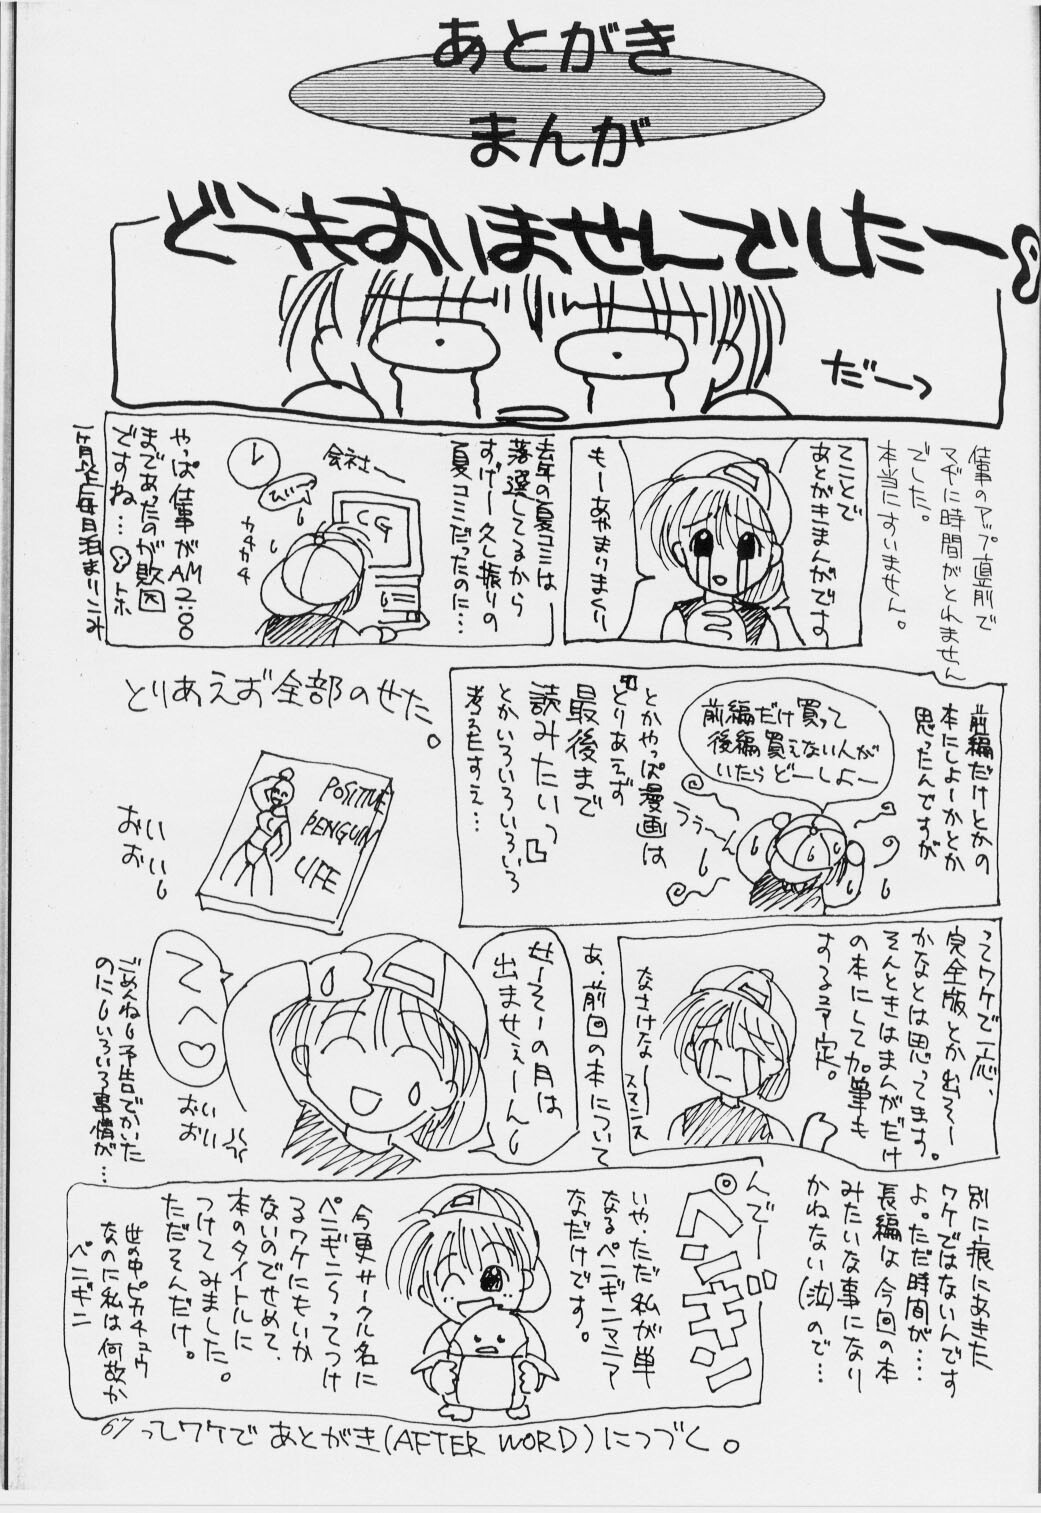 あとがき
まんが
どうもすいませんでしたー
だーっ
仕事のアップ直前で
マヂに時間がとれません
でした。
本当にすいません。
てことで
あとがきまんがです
もーあやまりまくり
去年の夏コミは
落選してるから
すげー久し振りの
夏コミだったのに…
会社ー
CG
ひぃーっ
カタカタ
やっぱ仕事がAM2:00
まであったのが敗因
ですね…トホ
1ヶ月以上毎日泊まりこみ
前編だけとかの
本にしよーかとか
思ったんですが
前編だけ買って
後編買えない人が
いたらどーしよー
うぅーん
とかやっぱ漫画は
とりあえず
最後まで
読みたいっ」
とかいろいろいろいろ
考えたすえ…
とりあえず全部のせた。
POSITIVE
PENGUIN
LIFE
おいおい
ってワケで一応、
完全版とか出そー
かなとは思ってます。
そんときはまんがだけ
の本にして加筆も
する予定。
なさけなー
スマンス
あ、前回の本について
せーそーの月は
出ませぇーん
てへ♡
おいおい
ごめんね 予告でかいた
のに いろいろ事情が…
別に痕にあきた
ワケではないんです
よ。ただ時間が……
長編は今回の本
みたいな事になり
かねない(泣)ので…
んでー
ペンギン
いや、ただ私が単
なるペンギンマニア
なだけです。
今更サークル名に
ペンギンらってつけ
るワケにもいか
ないのでせめて、
本のタイトルに
つけてみました。
ただそんだけ。
世の中ピカチュウ
なのに私は何故か
ペンギン
67
ってワケであとがき(AFTER WORD)につづく。